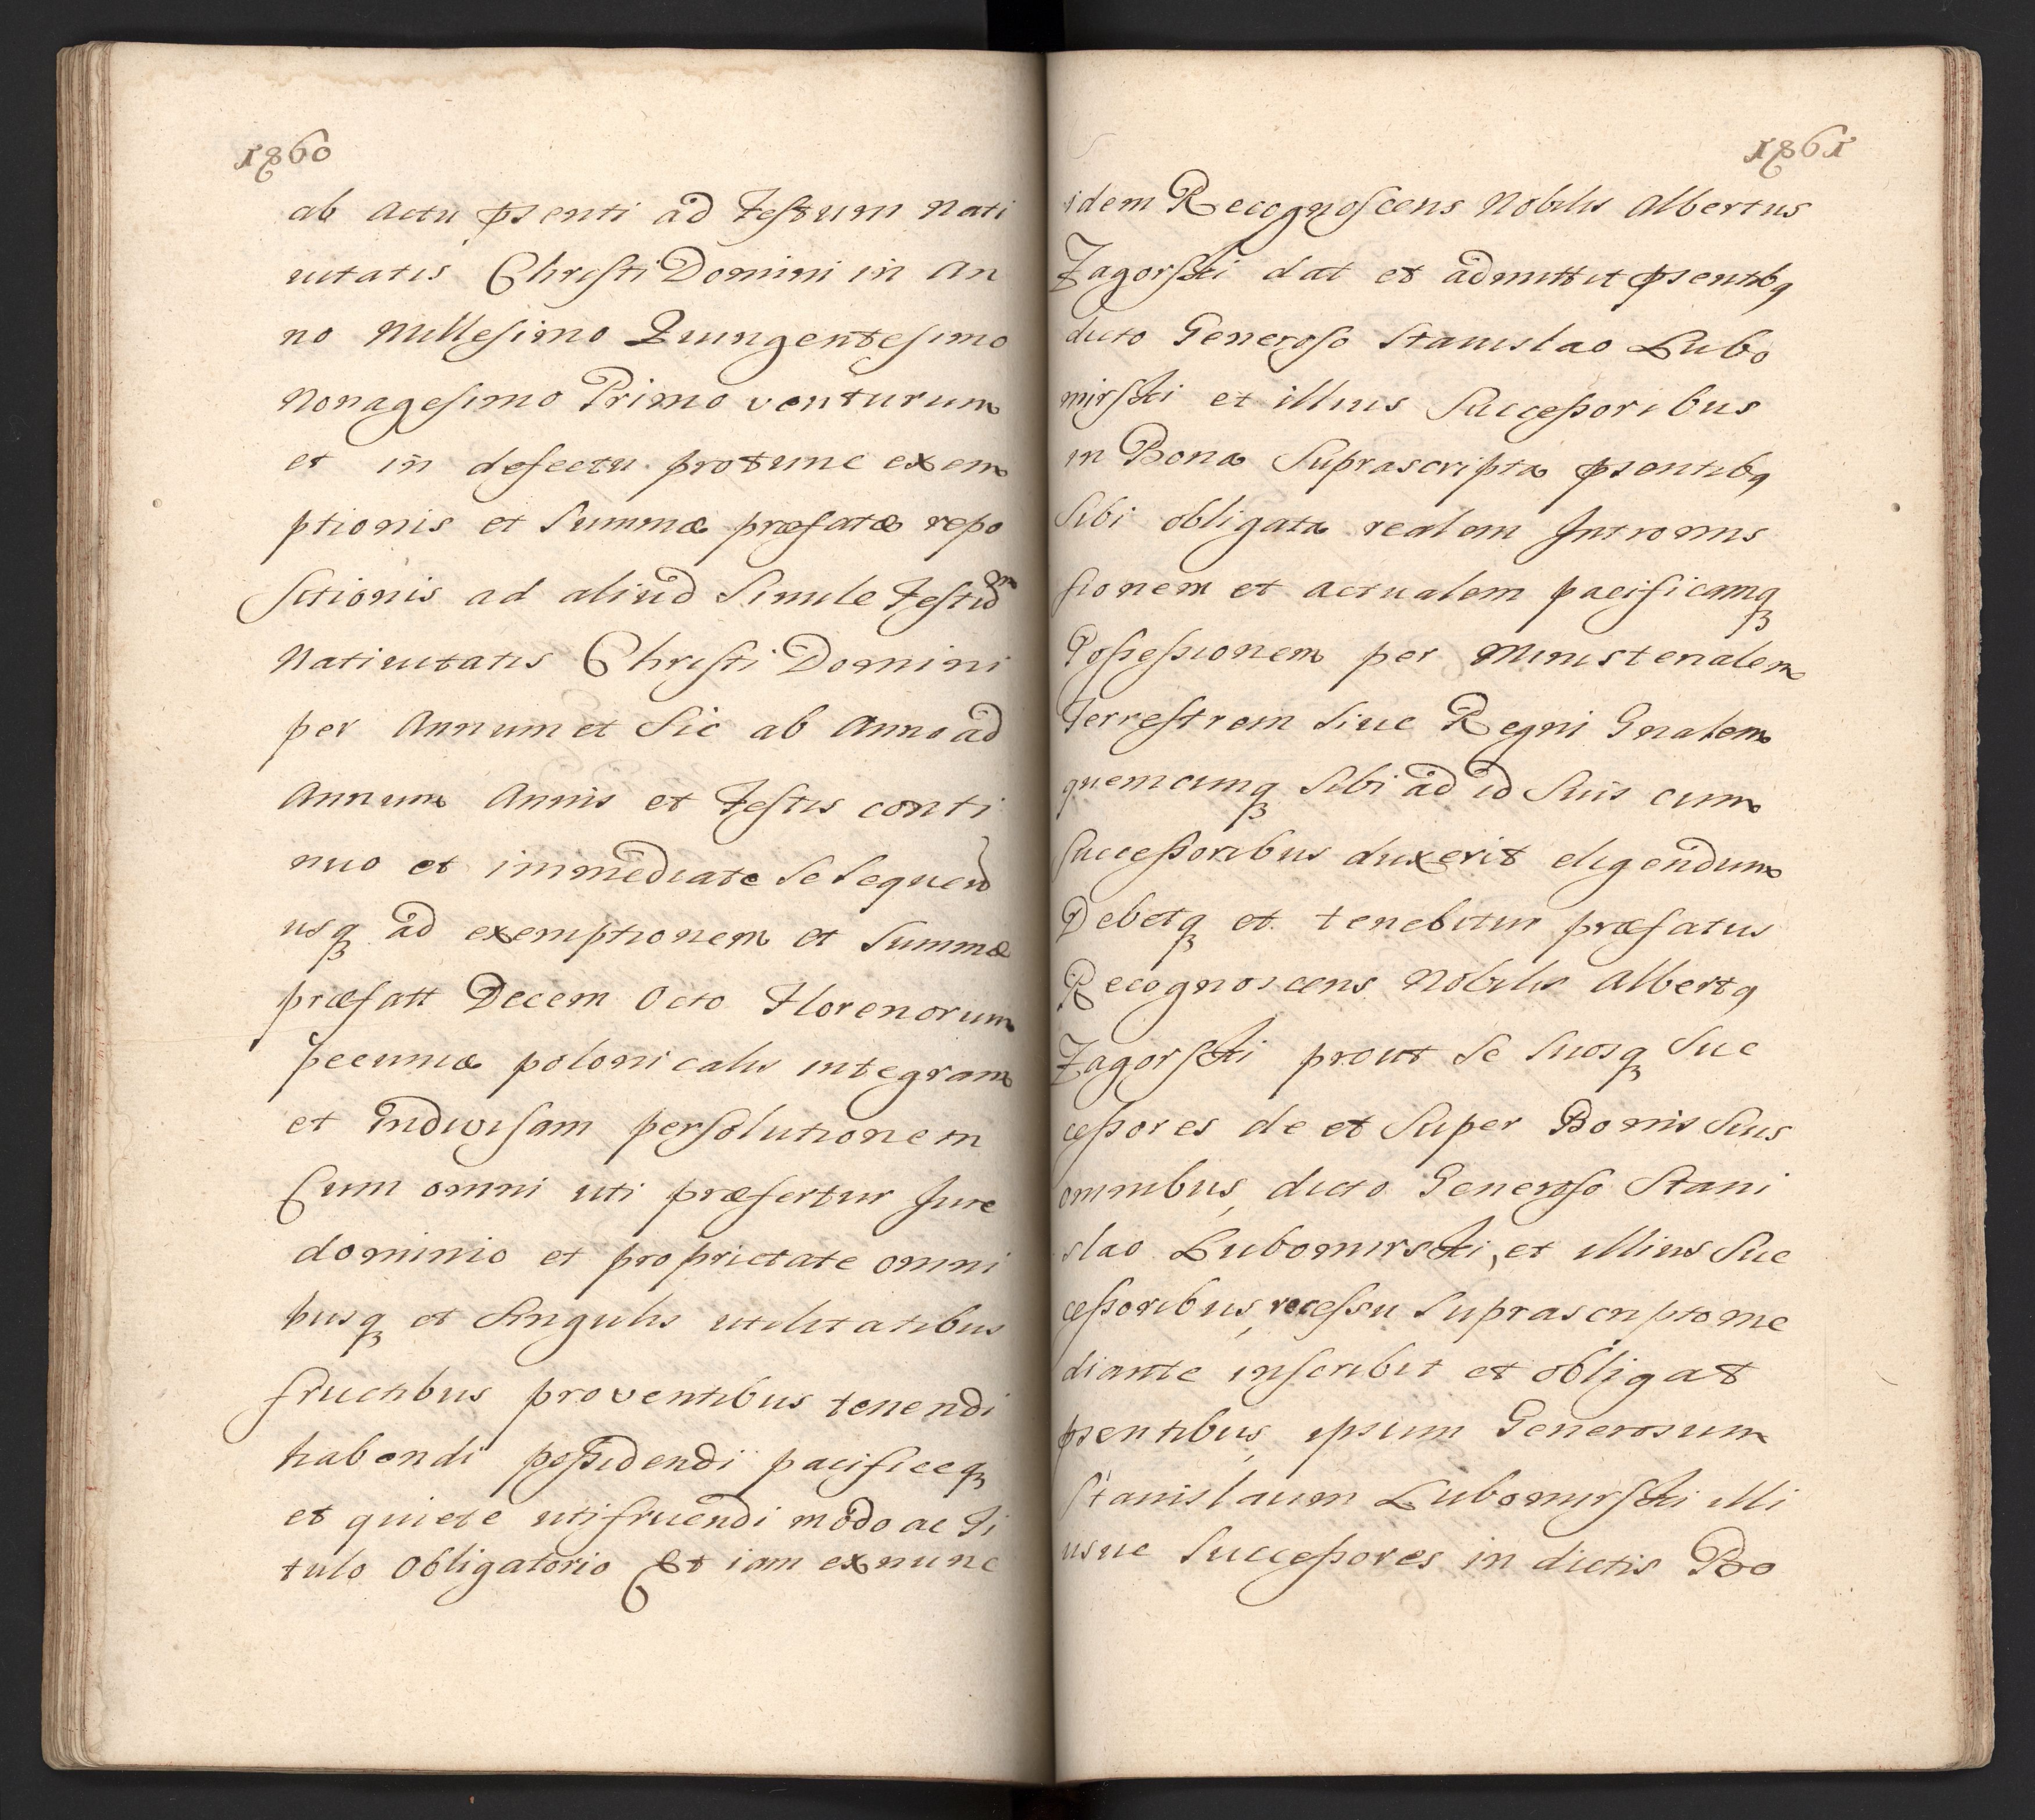 1860
ab actu pʳsenti ad Festum Nati
uitatis Christi Domini in An
no Millesimo Quingentesimo
Nonagesimo Primo venturum
et in defectu protunc exem
ptionis et Summæ præfatæ repo
sitionis ad aliud Simile Festū
Natiuitatis Christi Domini
per Annum et Sic ab Anno ad
Annum Annis et Festis conti
nuo et immediate Se Sequend
usqꝫ ad exemptionem et Summæ
præfatt Decem Octo Florenorum
pecuniæ polonicalis integram
et Indiuisam persolutionem
Cum omni uti præfertur Jure
dominio et proprietate omni
busqꝫ et Singulis utilitatibus
fructibus prouentibus tenendi
habendi possidendi pacificeqꝫ
et quiete utifruendi modo ac Ti
tulo Obligatorio Et iam exnunc
1861
idem Recognoscens Nobilis Albertus
Zagorski dat et admittit pʳsentibꝯ
dicto Generoso Stanislao Lubo
mirski et illius Successoribus
in Bona Suprascripta pʳsentibꝯ
Sibi obligata realem Intromis
sionem et actualem pacificamqꝫ
Possessionem per Ministerialem
Terrestrem Siue Regni Gnalem
quemcunqꝫ Sibi ad id Suis cum
Successoribus duxerit eligendum
Debetqꝫ et tenebitur præfatus
Recognoscens Nobilis Albertꝯ
Zagorski prout Se Suosqꝫ Suc
cessores de et Super Bonis Suis
omnibus, dicto Generoso Stani
slao Lubomirski, et illius Suc
cessoribus, recessu Suprascripto me
diante inscribit et obligat
pʳsentibus, ipsum Generosum
Stanislaum Lubomirski illi
usue Successores in dictis Bo